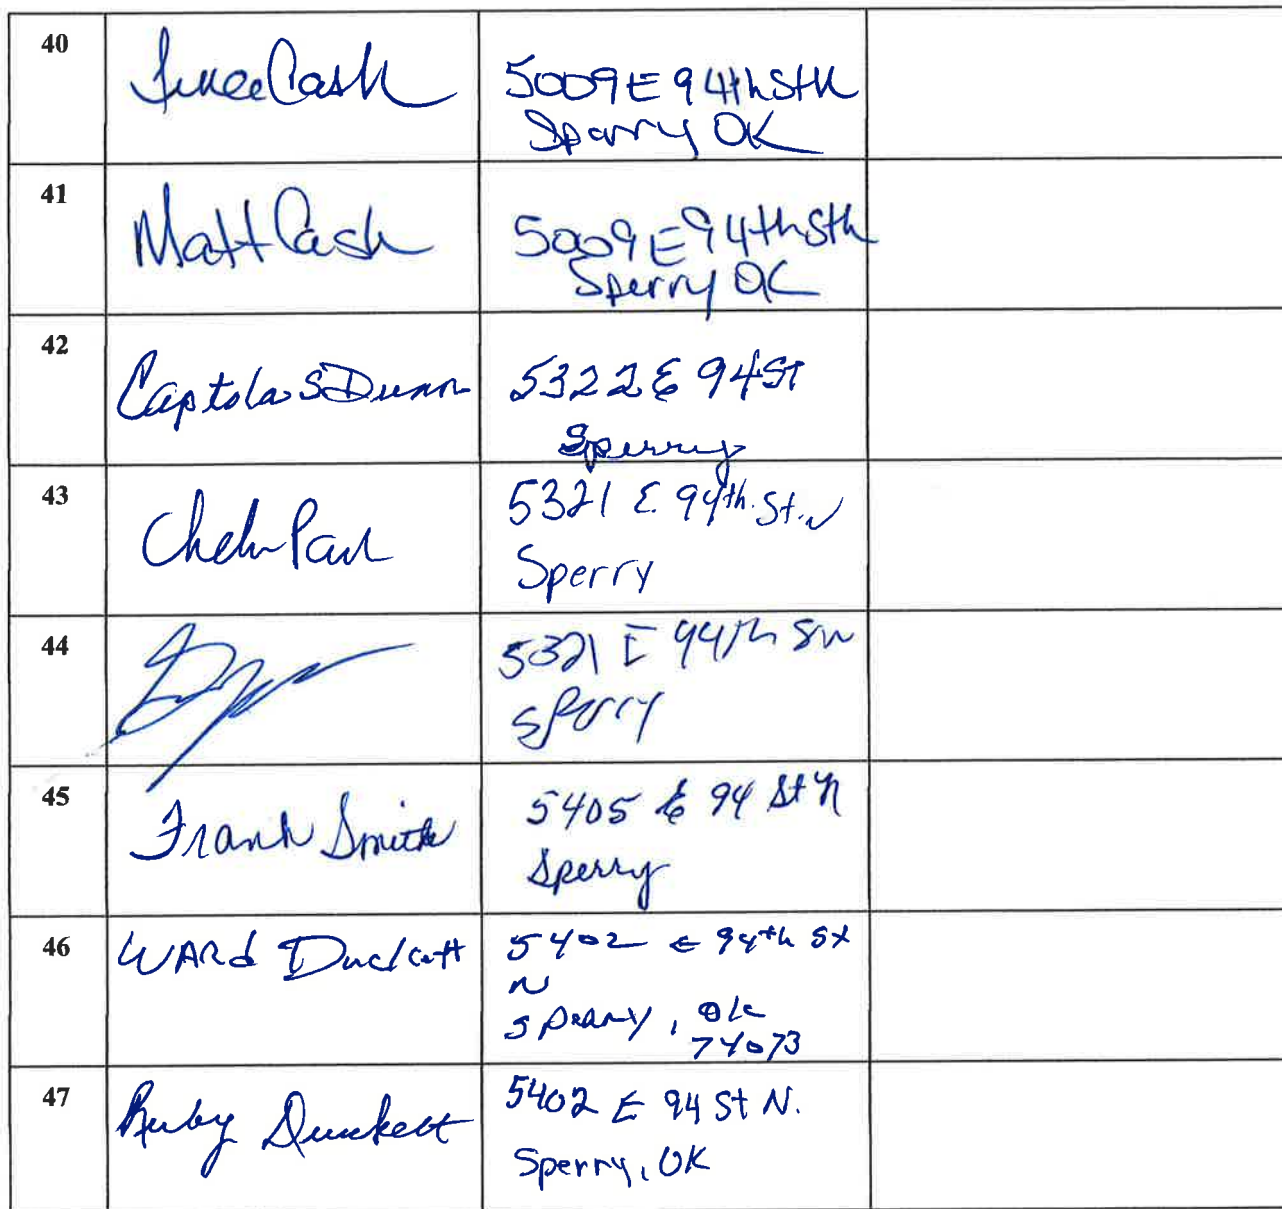 40
Cash
5009 E 94th St N
Sperry OK
41
Matt Cash
5009 E 94th St N
Sperry OK
42
Captola S Dunn
5322 E 94 St
Sperry
43
5321 E. 94th. St. N
Sperry
44
5321 E 94th SN
Sperry
45
Frank Smith
5405 E 94 St N
Sperry
46
WARd Duckett
5402 E 94th St
N
Sperry, OK
74073
47
Ruby Duckett
5402 E 94 St N.
Sperry, OK